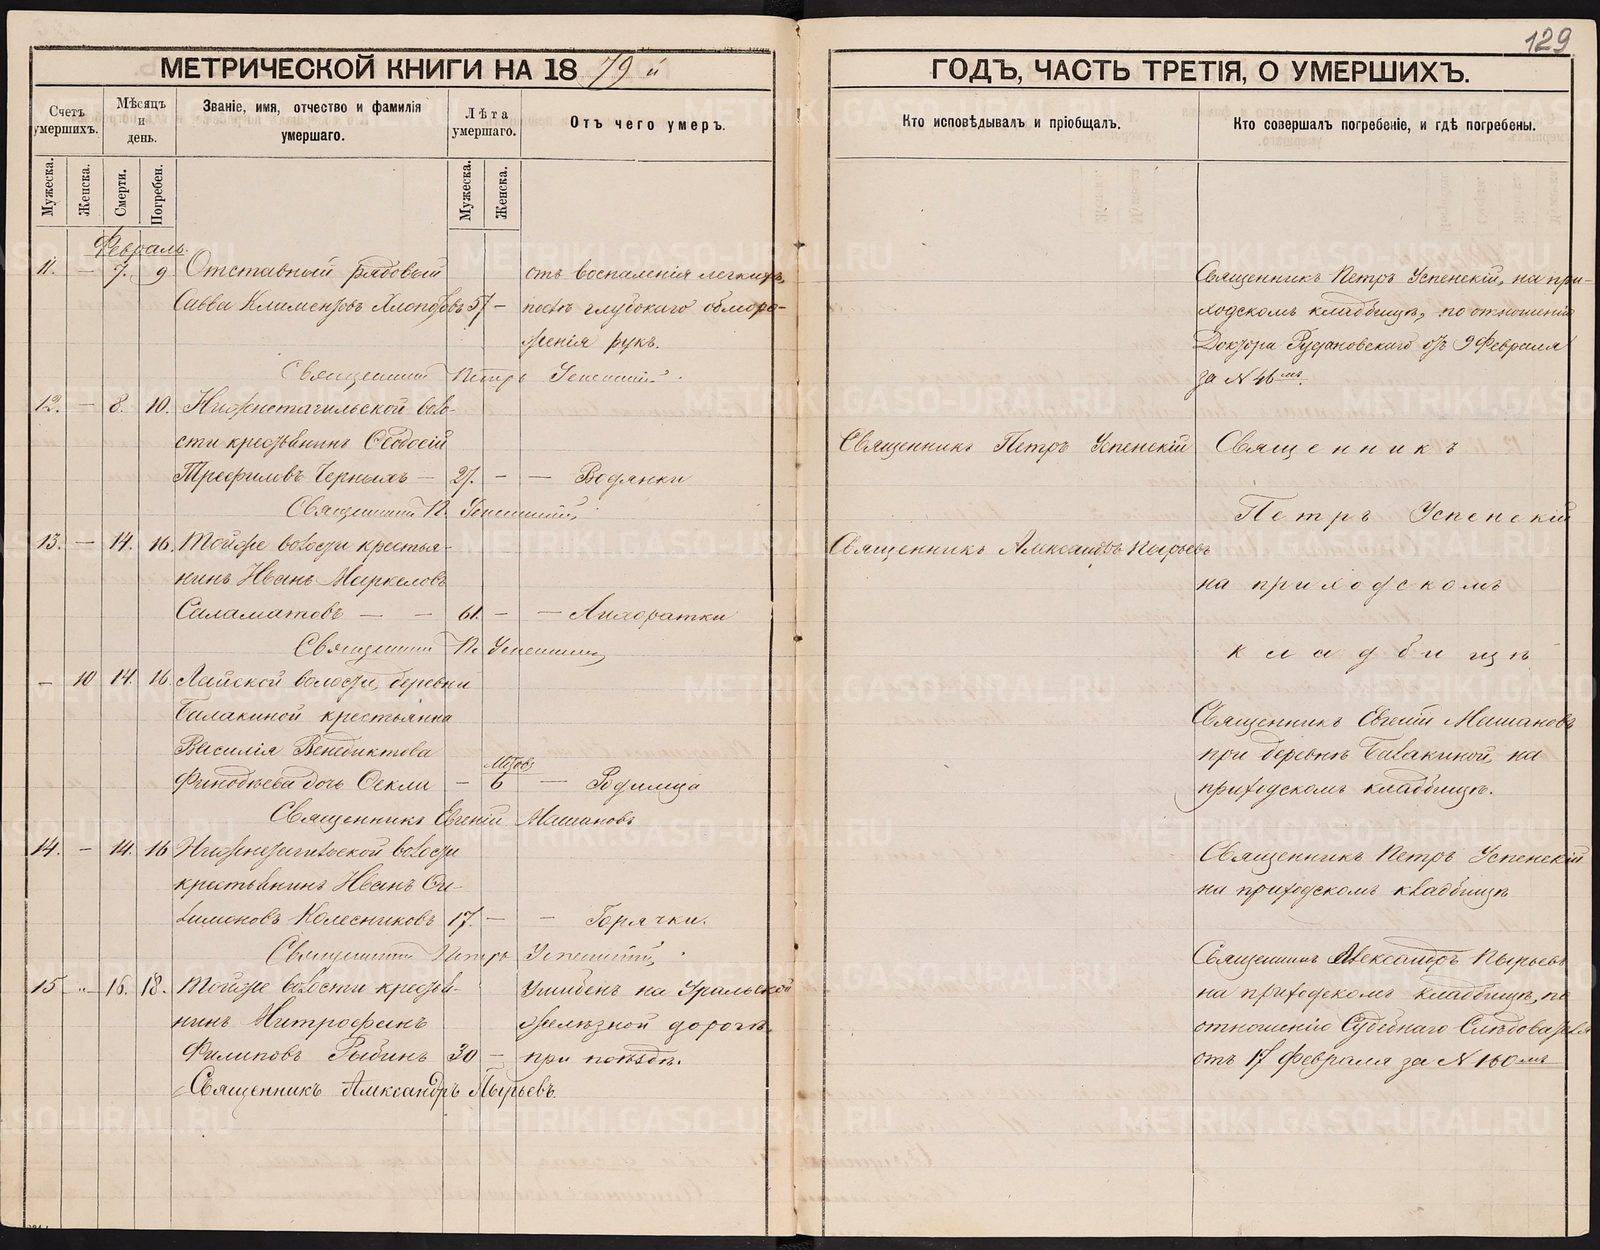 129
МЕТРИЧЕСКОЙ КНИГИ НА 1879 й
ГОДЪ, ЧАСТЬ ТРЕТІЯ, О УМЕРШИХЪ.
Счетъ умершихъ.
Мѣсяцъ и день.
Званіе, имя, отчество и фамилія умершаго.
Лѣта умершаго.
Отъ чего умеръ.
Кто исповѣдывалъ и пріобщалъ.
Кто совершалъ погребеніе, и гдѣ погребены.
Мужеска.
Женска.
Смерти.
Погребен.
Мужеска.
Женска.
Февраль.
11. — 7. 9. Отставный рядовый
Савва Климентовъ 57 —
отъ воспаленія легкихъ,
послѣ глубокаго обморо-
женія рукъ.
Священникъ Петръ Успенскій, на при-
ходскомъ кладбищѣ, по отношенію
Доктора отъ 9 Февраля
за №
Священникъ Петръ Успенскій.
12. — 8. 10. Нижнетагильской воло-
сти крестьянинъ Ѳеодосій
Трефиловъ Черныхъ — 27. — — Водянки
Священникъ П. Успенскій
Священникъ Петръ Успенскій
Священникъ
Петръ Успенскій
на приходскомъ
кладбищѣ
13. — 14. 16. Тойже волости крестья-
нинъ Иванъ Маркеловъ
Саламатовъ — — 61. — — Лихорадки
Священникъ П. Успенскій
Священникъ Александръ Пырьевъ
— 10 14. 16. Лайской волости, деревни
Балакиной крестьянина
Василія Венедиктова
дочь Ѳекли — 6 мѣсяц. — Родимца
Священникъ Евгеній Машановъ
Священникъ Евгеній Машановъ
при деревнѣ Балакиной, на
приходскомъ кладбищѣ.
14. — 14. 16 Нижнетагильской волости
крестьянинъ Иванъ Фи-
лимоновъ Колесниковъ 17. — — Горячки.
Священникъ Петръ Успенскій
Священникъ Петръ Успенскій
на приходскомъ кладбищѣ
15 „ 16. 18. Тойже волости крестья-
нинъ Митрофанъ
Филиповъ Рыбинъ 30 —
Ушибенъ на Уральской
желѣзной дорогѣ
при поѣздѣ.
Священникъ Александръ Пырьевъ.
Священникъ Александръ Пырьевъ
на приходскомъ кладбищѣ, по
отношенію Судебнаго Слѣдователя
отъ 17 февраля за № 160 мъ
METRIKI.GASO-URAL.RU